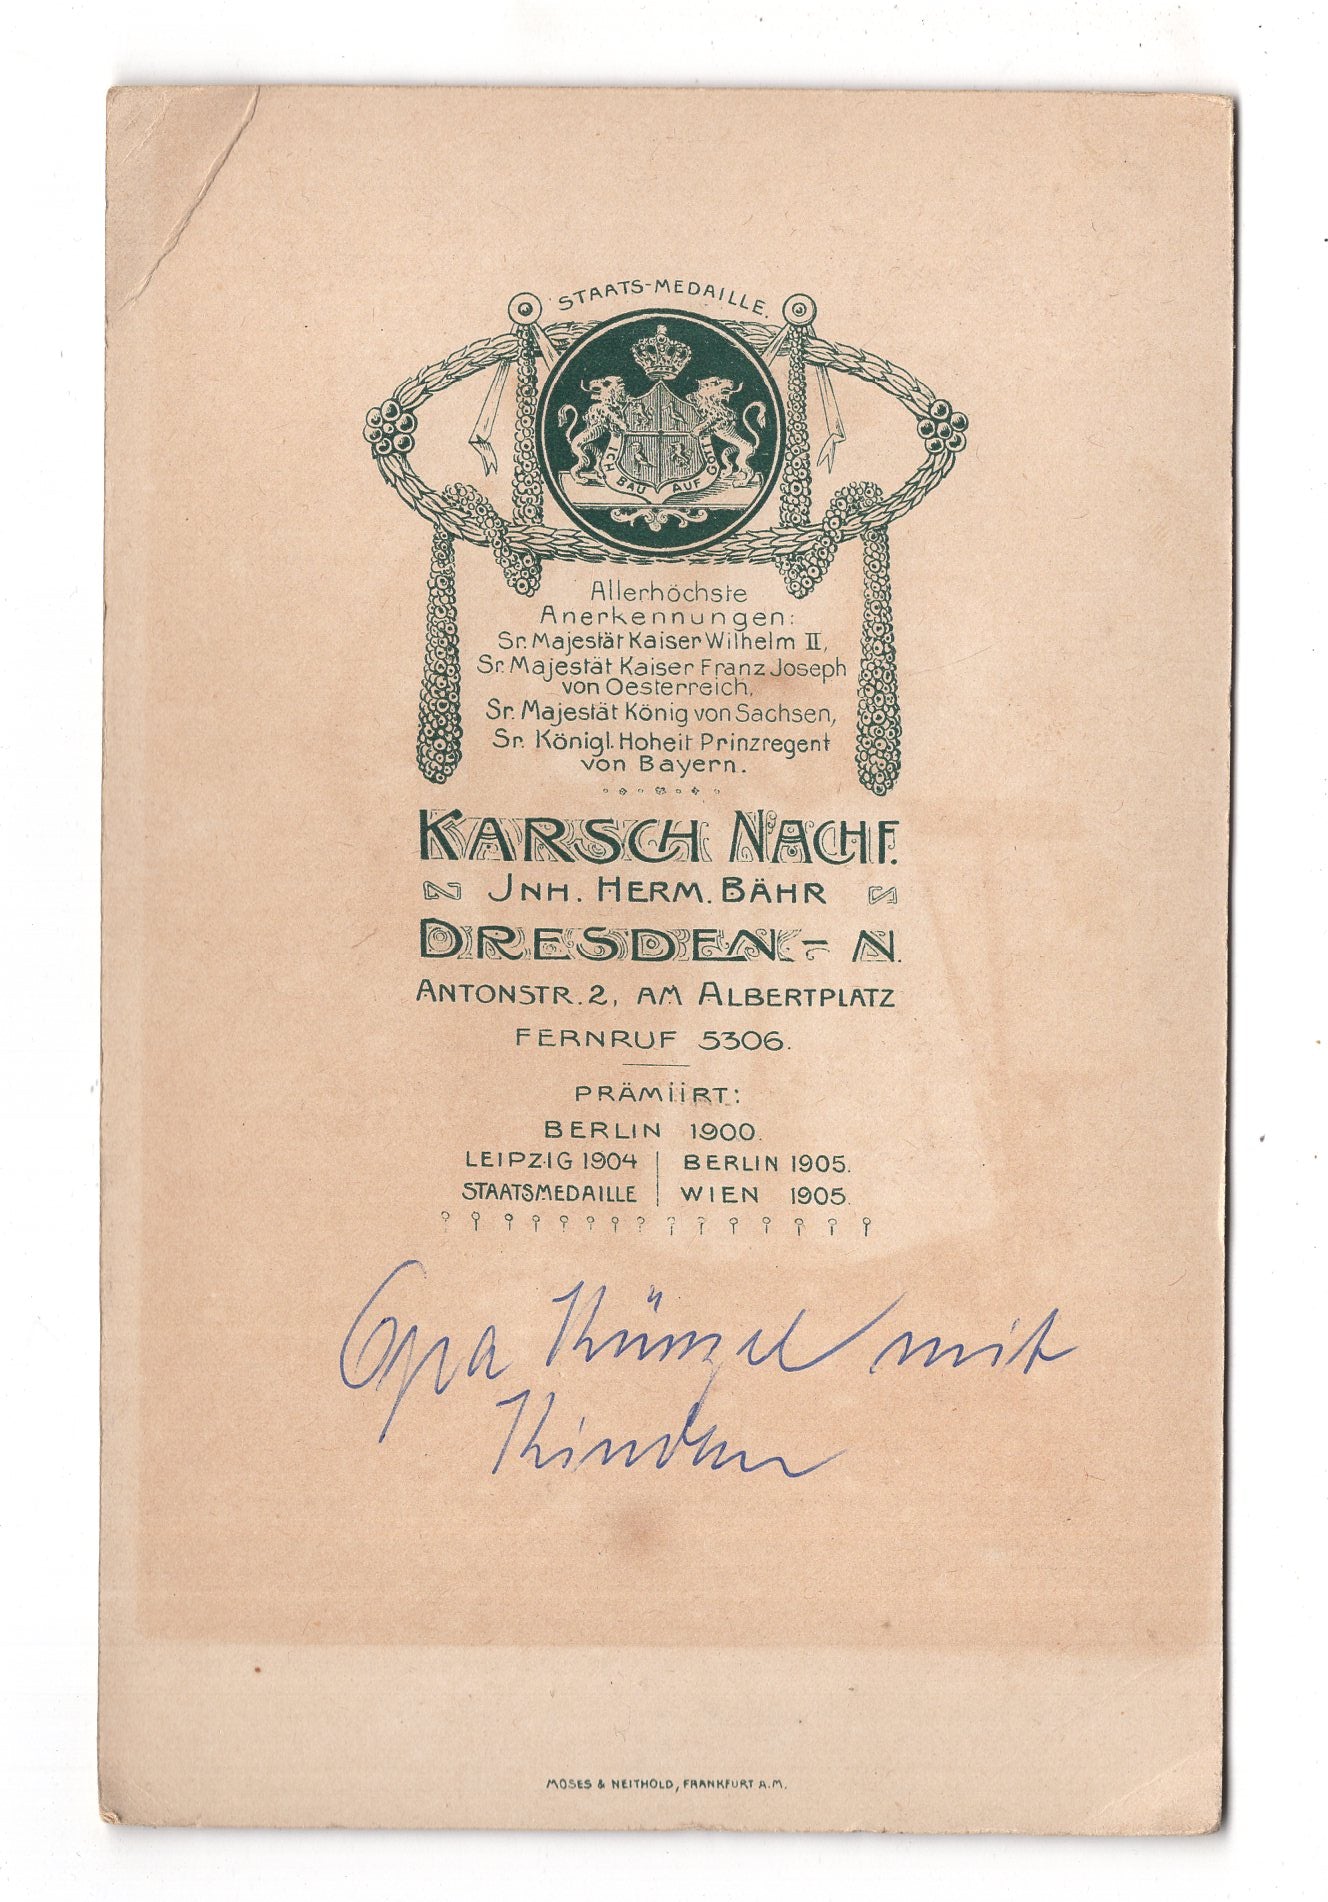 STAATS-MEDAILLE.
ICH BAU AUF GOTT
Allerhöchste
Anerkennungen:
Sr. Majestät Kaiser Wilhelm II,
Sr. Majestät Kaiser Franz Joseph
von Oesterreich,
Sr. Majestät König von Sachsen,
Sr. Königl. Hoheit Prinzregent
von Bayern.
KARSCH NACHF.
JNH. HERM. BÄHR
DRESDEN - N.
ANTONSTR. 2, AM ALBERTPLATZ
FERNRUF 5306.
PRÄMIIRT:
BERLIN 1900.
LEIPZIG 1904 | BERLIN 1905.
STAATSMEDAILLE | WIEN 1905.
Opa Künzel mit
Kindern
MOSES & NEITHOLD, FRANKFURT A.M.